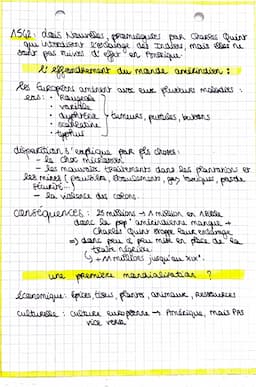 1542 : lois Nouvelles, promulguées par Charles Quint
qui interdisent l'esclavage des Indiens, mais elles ne
sont pas suivis d'effet en Amérique.
L'effondrement du monde amérindien :
Les Européens amènent avec eux plusieurs maladies :
ex :
• rougeole
• variole
• diphtérie
• scarlatine
• typhus
→ tumeurs, pustules, boutons
disparition s'explique par plls choses :
- le choc microbien
- les mauvais traitements dans les plantations et
les mines ( poussière, éboulement, gaz toxiques,
- la violence des colons.
conséquences : 25 millions → 1 million en
dans la pop° amérindienne manque →
Charles Quint stoppe leur esclavage
⇒ donc peu à peu mise en place de la
traite négrière
↳ + 11 millions jusqu'au XIXe.
une première mondialisation ?
économique : épices, tissu, plants, animaux, ressources
culturelle : culture européenne → Amérique, mais PAS
vice versa